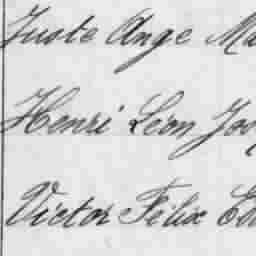 Juste Ange Ma
Henri Léon Jos
Victor Félix